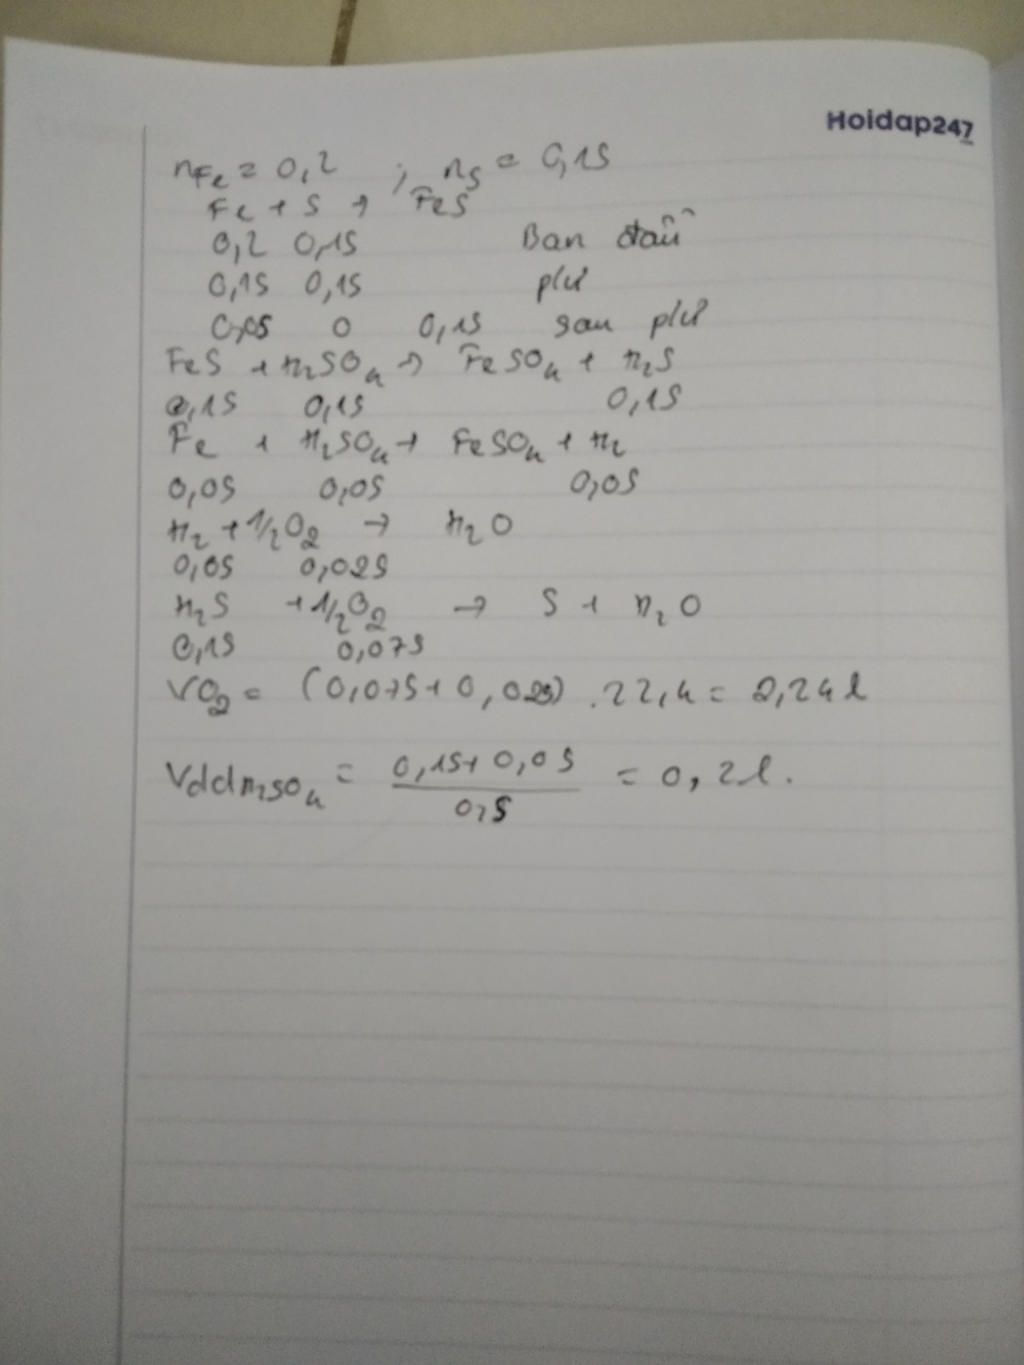 Hoidap247
nFe = 0,2 ; nS = 0,15
Fe + S → FeS
0,2 0,15 Ban đầu
0,15 0,15 pứ
0,05 0 0,15 sau pứ
FeS + H2SO4 → FeSO4 + H2S
0,15 0,15 0,15
Fe + H2SO4 → FeSO4 + H2
0,05 0,05 0,05
H2 + 1/2O2 → H2O
0,05 0,025
H2S + 1/2O2 → S + H2O
0,15 0,075
VO2 = (0,075+0,025) .22,4 = 2,24 l
VddH2SO4 = 0,15+0,05 / 0,5 = 0,2l.